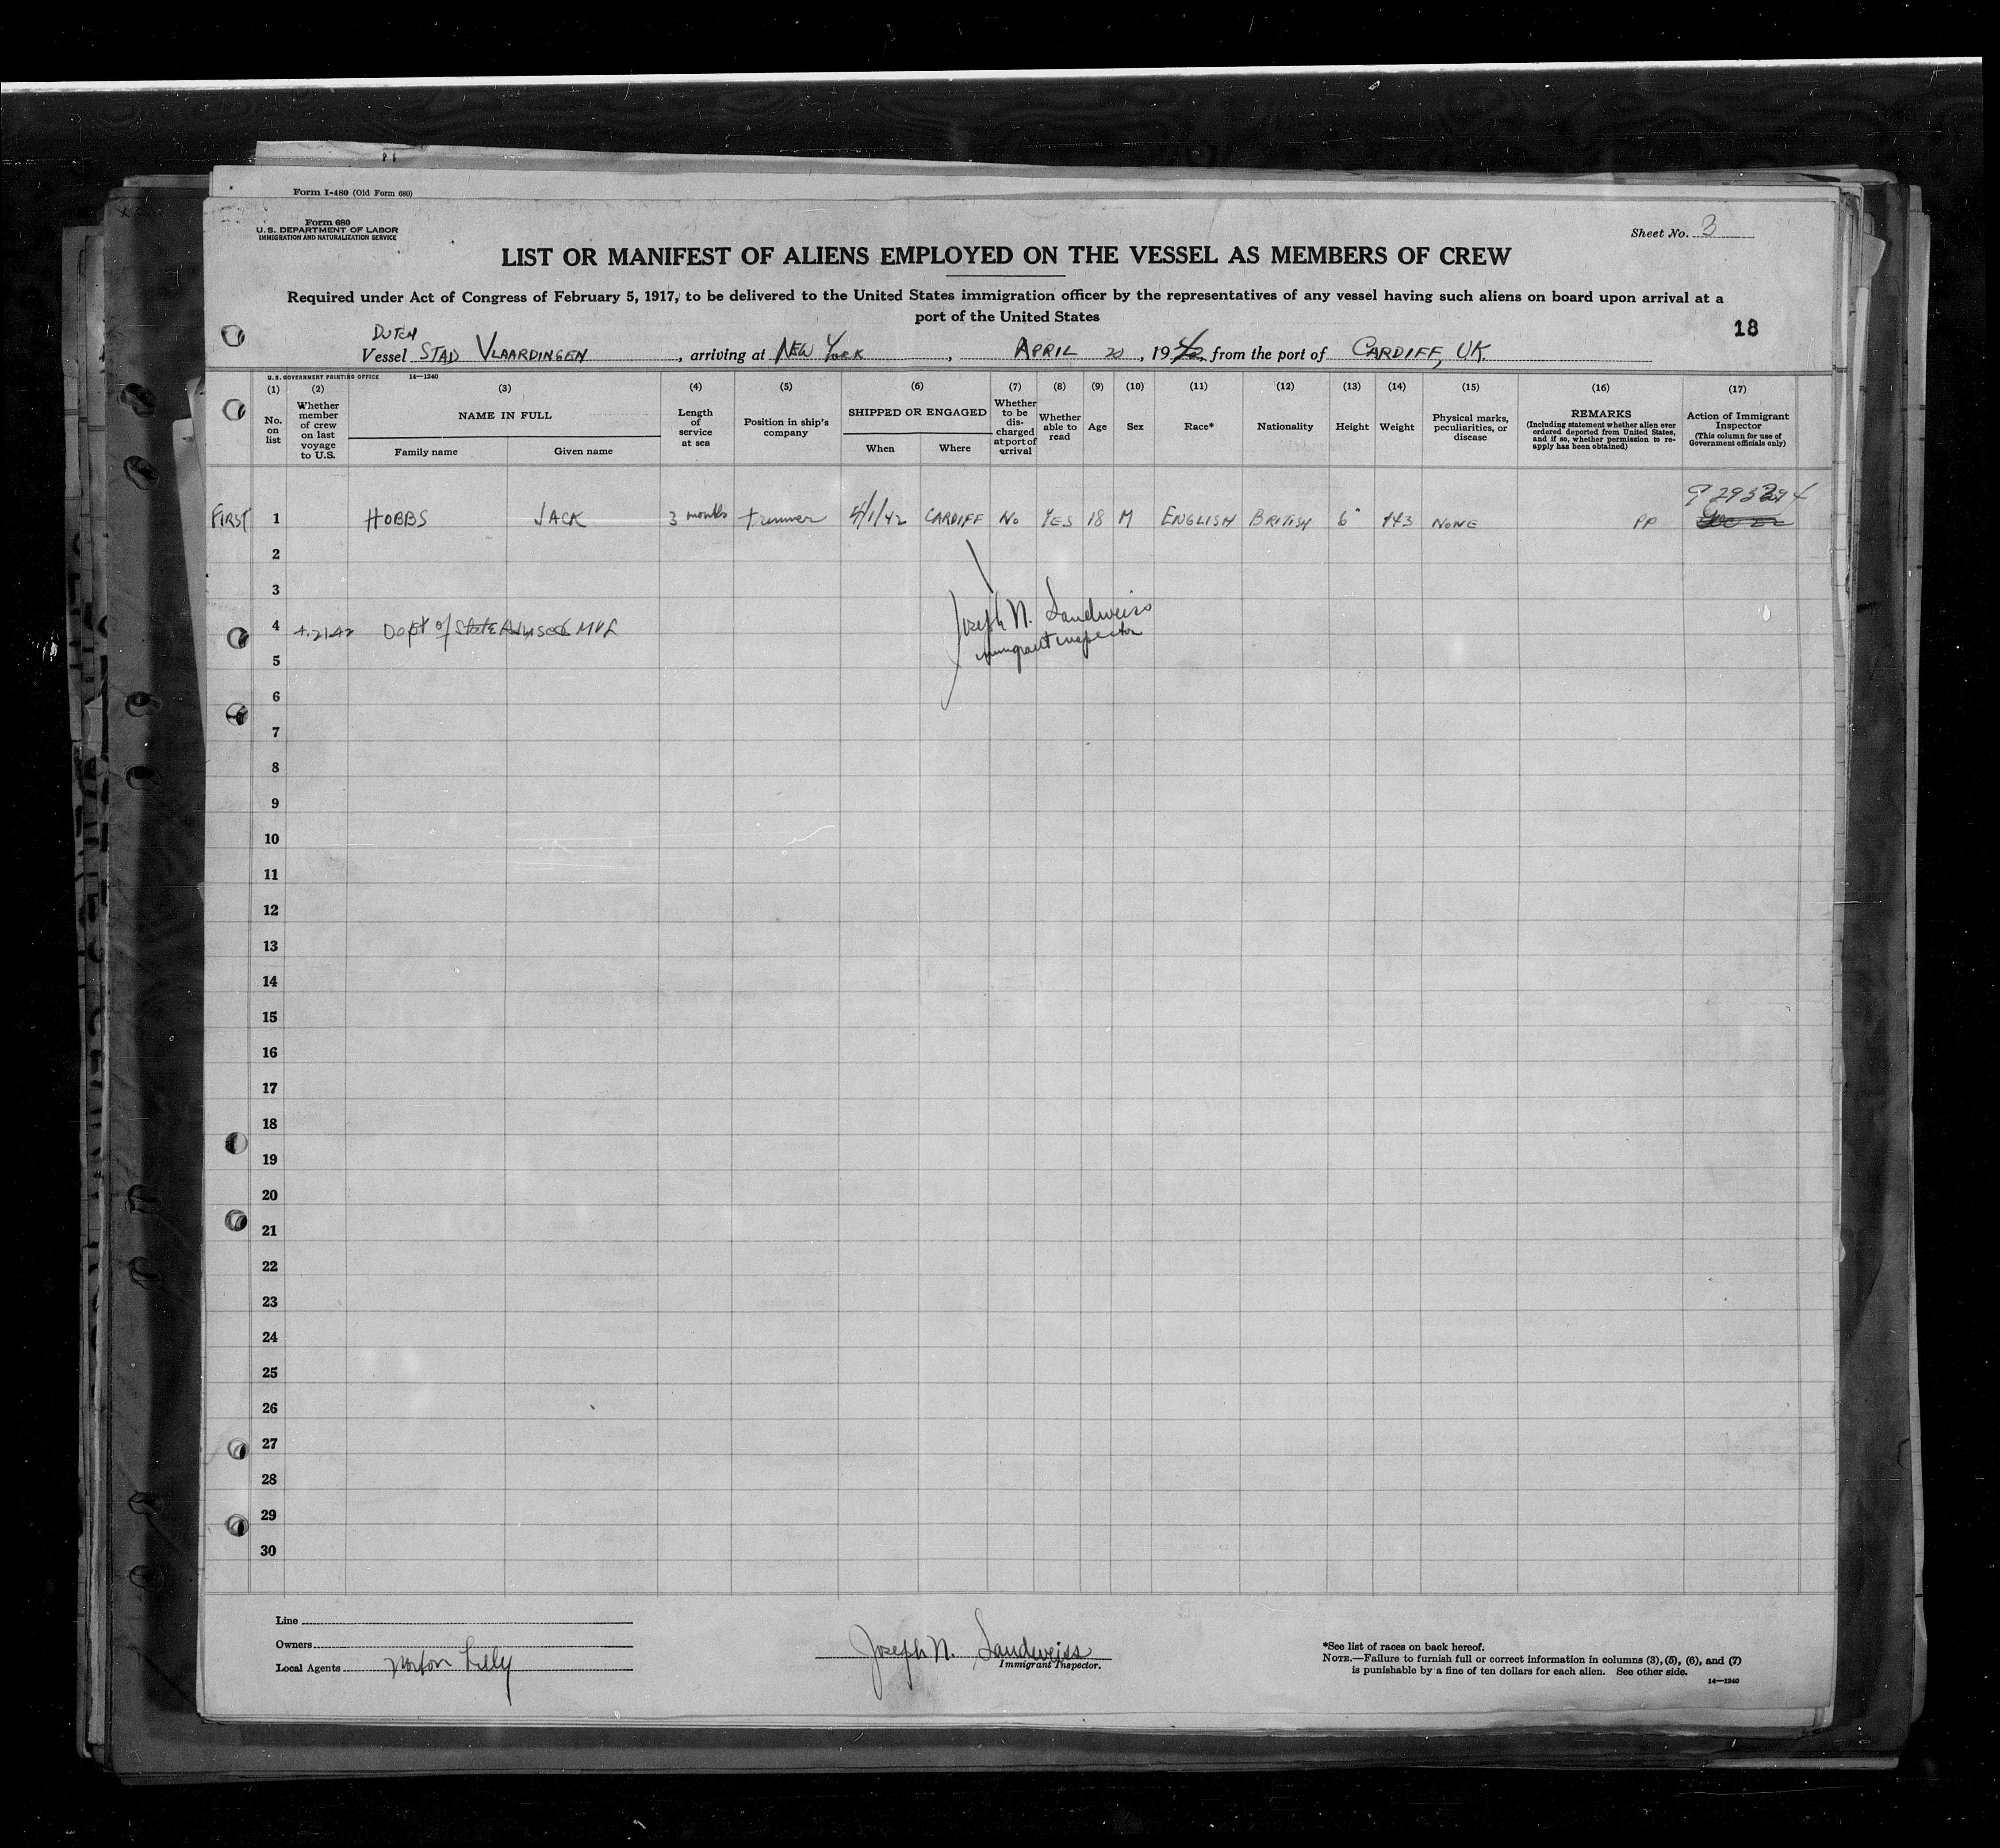 Form I-480 (Old Form 680)
Form 680
U. S. DEPARTMENT OF LABOR
IMMIGRATION AND NATURALIZATION SERVICE
Sheet No. 3
LIST OR MANIFEST OF ALIENS EMPLOYED ON THE VESSEL AS MEMBERS OF CREW
Required under Act of Congress of February 5, 1917, to be delivered to the United States immigration officer by the representatives of any vessel having such aliens on board upon arrival at a
port of the United States
18
DUTCH
Vessel STAD VLAARDINGEN, arriving at NEW YORK, APRIL 20, 1942 from the port of CARDIFF, UK.
U. S. GOVERNMENT PRINTING OFFICE 14—1240
(1) No. on list
(2) Whether member of crew on last voyage to U.S.
(3) NAME IN FULL
Family name Given name
(4) Length of service at sea
(5) Position in ship's company
(6) SHIPPED OR ENGAGED
When Where
(7) Whether to be discharged at port of arrival
(8) Whether able to read
(9) Age
(10) Sex
(11) Race*
(12) Nationality
(13) Height
(14) Weight
(15) Physical marks, peculiarities, or disease
(16) REMARKS
(Including statement whether alien ever ordered deported from United States, and if so, whether permission to reapply has been obtained)
(17) Action of Immigrant Inspector
(This column for use of Government officials only)
FIRST 1 HOBBS JACK 3 months trimmer 4/1/42 CARDIFF NO YES 18 M ENGLISH BRITISH 6" 143 NONE PP
2
3
Joseph N. Landweiss
4 4-21-42 Dept of State Advised MVL
immigrant inspector
5
6
7
8
9
10
11
12
13
14
15
16
17
18
19
20
21
22
23
24
25
26
27
28
29
30
Line
Owners
Local Agents Norton Lilly
Joseph N. Landweiss
Immigrant Inspector.
*See list of races on back hereof.
NOTE.—Failure to furnish full or correct information in columns (3), (5), (6), and (7)
is punishable by a fine of ten dollars for each alien. See other side.
14—1240